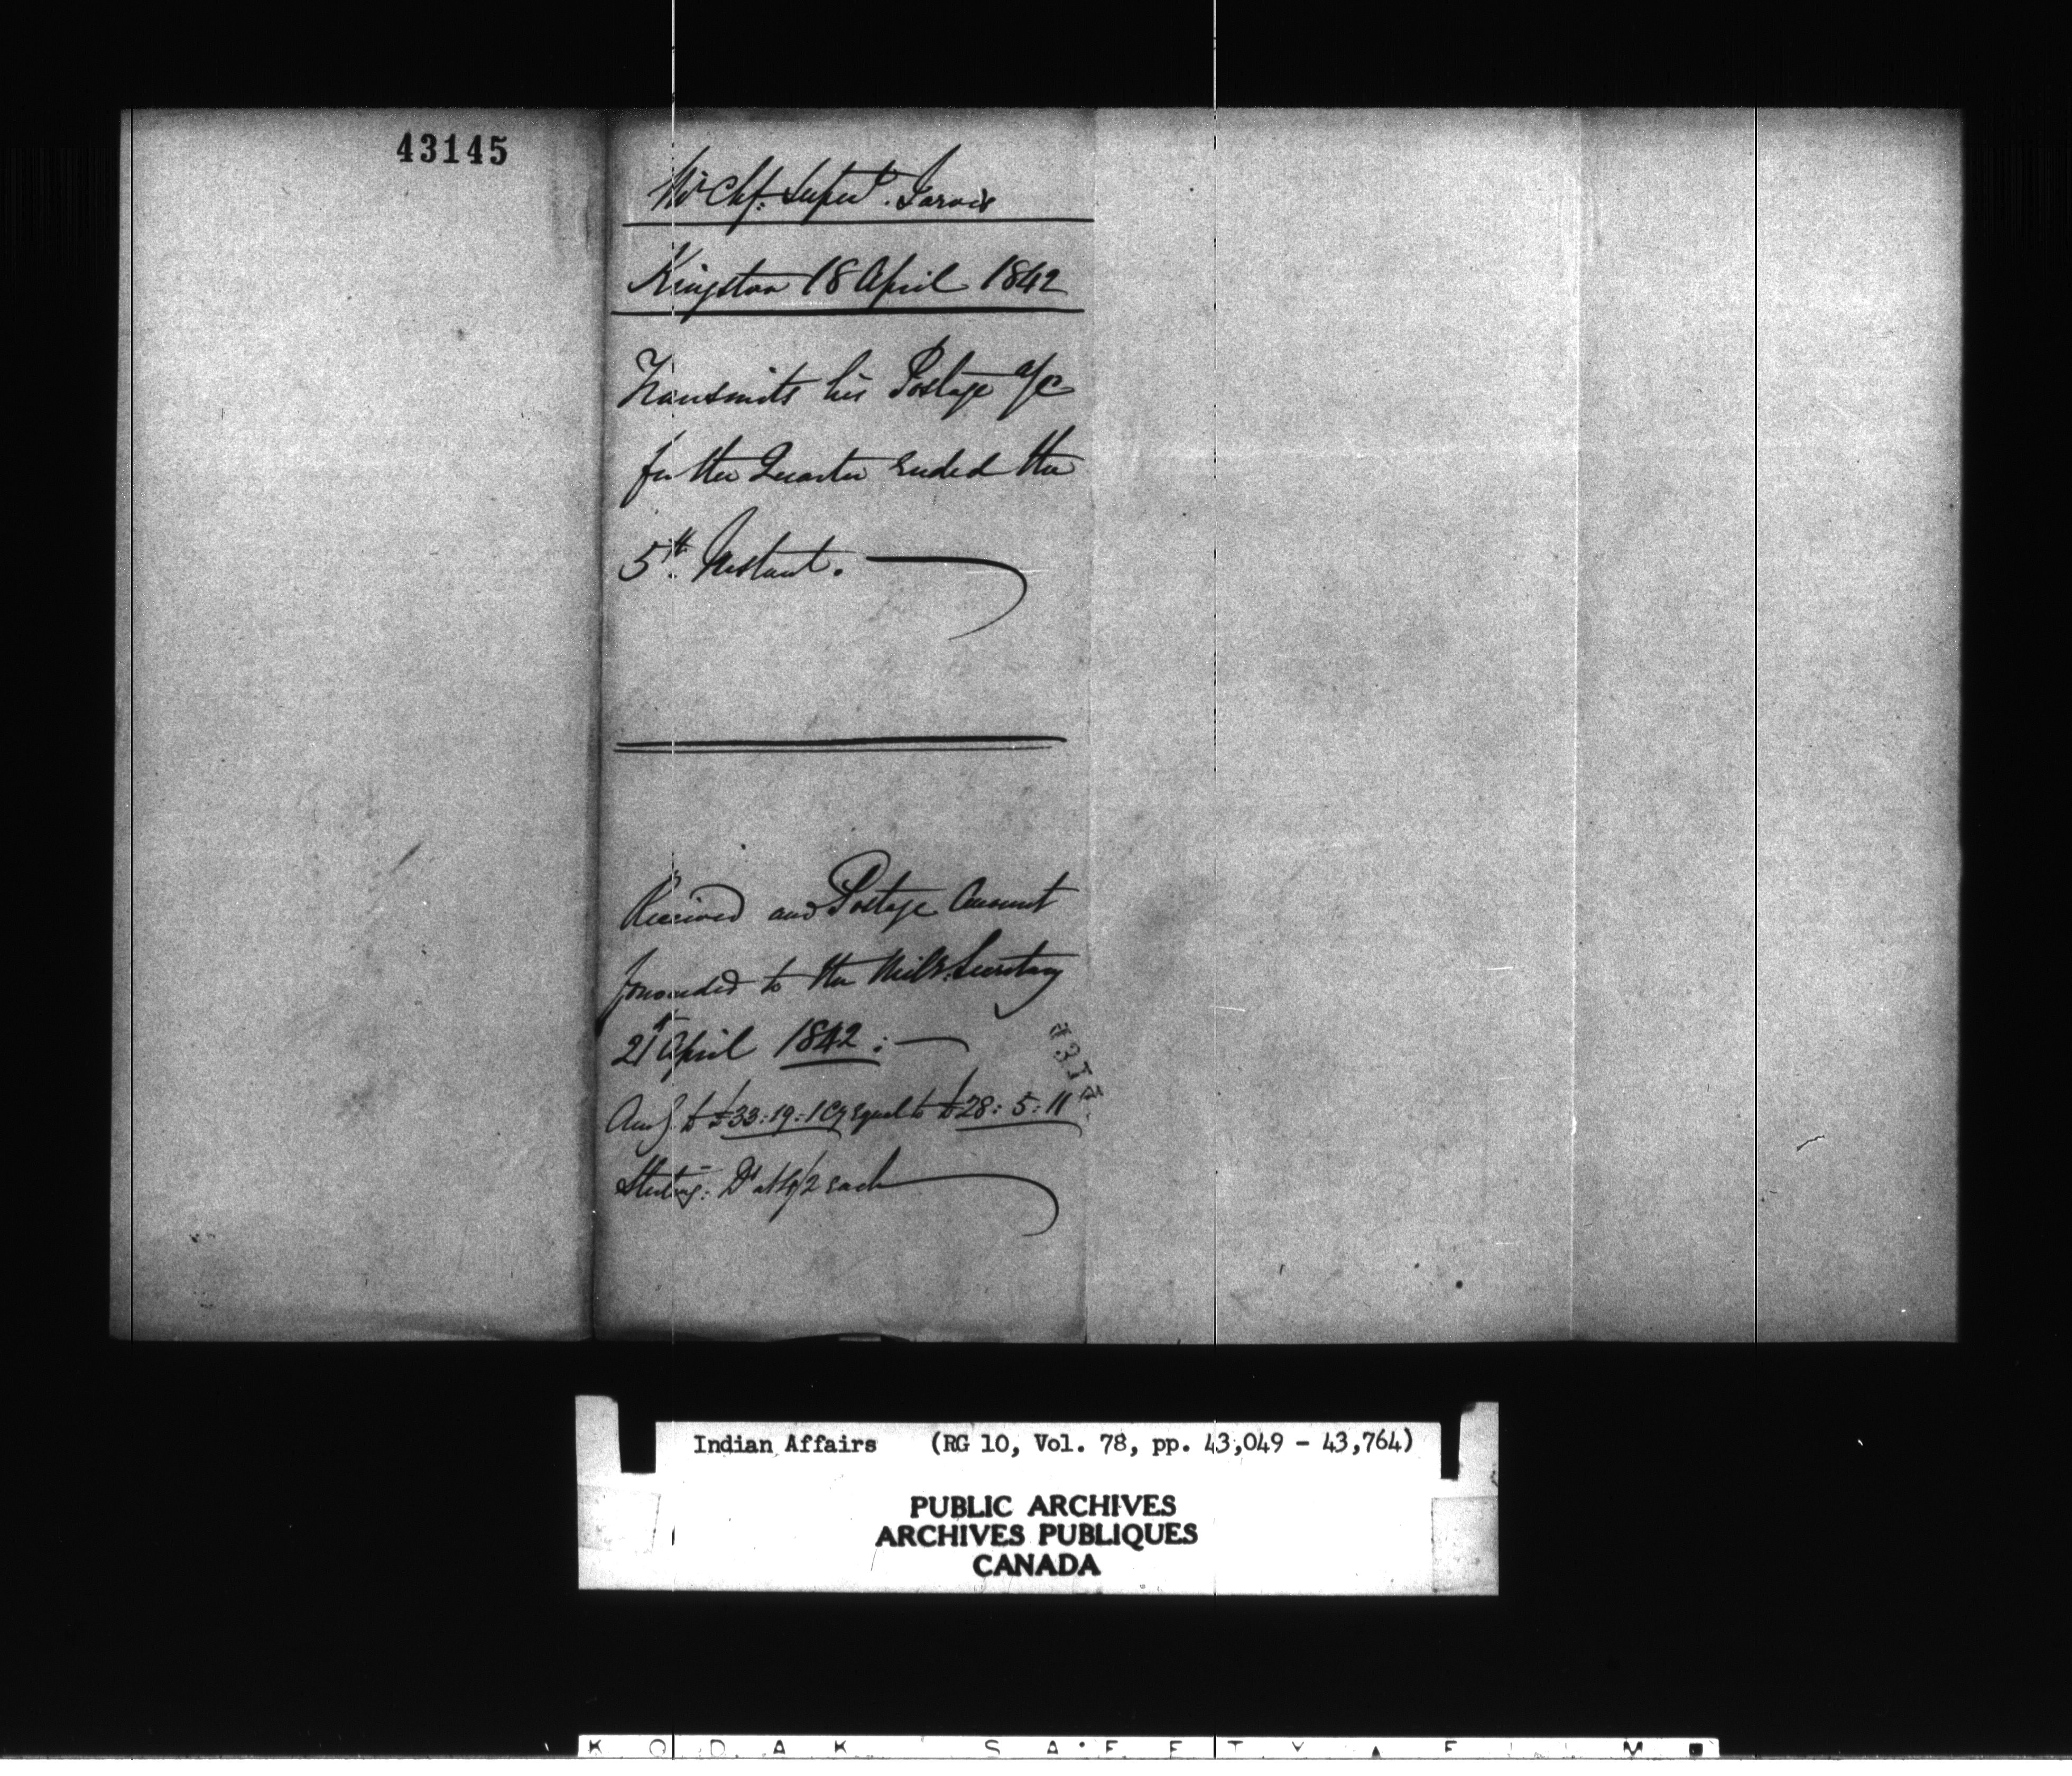 43145
Mr Chf. Supert. Jarvis
Kingston 18 April 1842
Transmits his Postage a/c
for the Quarter ended the
5th. Instant.
Received and Postage Account
forwarded to the Mily. Secretary
21st April 1842 :
to £33:19:1 Cy equal to £28:5:11
Sterling: Ds at 4/2 each
Indian Affairs (RG 10, Vol. 78, pp. 43,049 - 43,764)
PUBLIC ARCHIVES
ARCHIVES PUBLIQUES
CANADA
KODAK SAFETY FILM